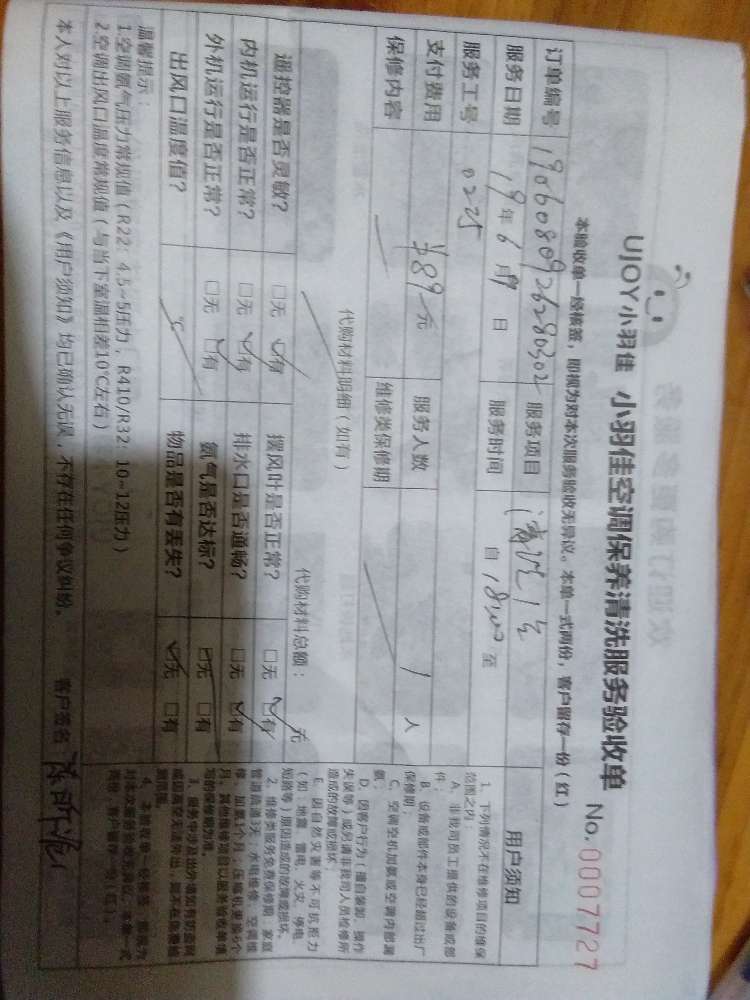 UJOY小羽佳 小羽佳空调保养清洗服务验收单 No.0007727
本验收单一经核签，即视为对本次服务验收无异议。本单一式两份，客户留存一份（红）
订单编号 1906080926280302 服务项目 清洗1台
服务日期 19年6月9日 服务时间 自 18:00 至
服务工号 0225
支付费用 ¥89元 服务人数 1人
保修内容 维修类保修期
代购材料明细（如有）
代购材料总额： 元
遥控器是否灵敏？ □无 ☑有 摆风叶是否正常？ □无 ☑有
内机运行是否正常？ □无 ☑有 排水口是否通畅？ □无 ☑有
外机运行是否正常？ □无 ☑有 氨气是否达标？ ☑无 □有
出风口温度值？ ℃ 物品是否有丢失？ ☑无 □有
温馨提示：
1.空调氨气压力常规值（R22：4.5~5压力，R410/R32：10~12压力）
2.空调出风口温度常规值（与当下室温相差10℃左右）
本人对以上服务信息以及《用户须知》均已确认无误，不存在任何争议纠纷。 客户签名
用户须知
1、下列情况不在维修项目的维保
范围之内：
A、非我司员工提供的设备或部
件；
B、设备或部件本身已经超过出厂
保修期；
C、空调空机加氨或空调内部漏
氨；
D、因客户行为（擅自装卸、操作
失误等）或另请非我司人员检修所
造成的故障或损坏；
E、因自然灾害等不可抗拒力
（如：地震、雷电、火灾、停电、
短路等）原因造成的故障或损坏。
2、维修类服务免费保修期：家庭
管道疏通3天；水电维修、空调维
修、加氨1个月；压缩机更换6个
月，其他维修项目以服务验收单填
写的保修期为准。